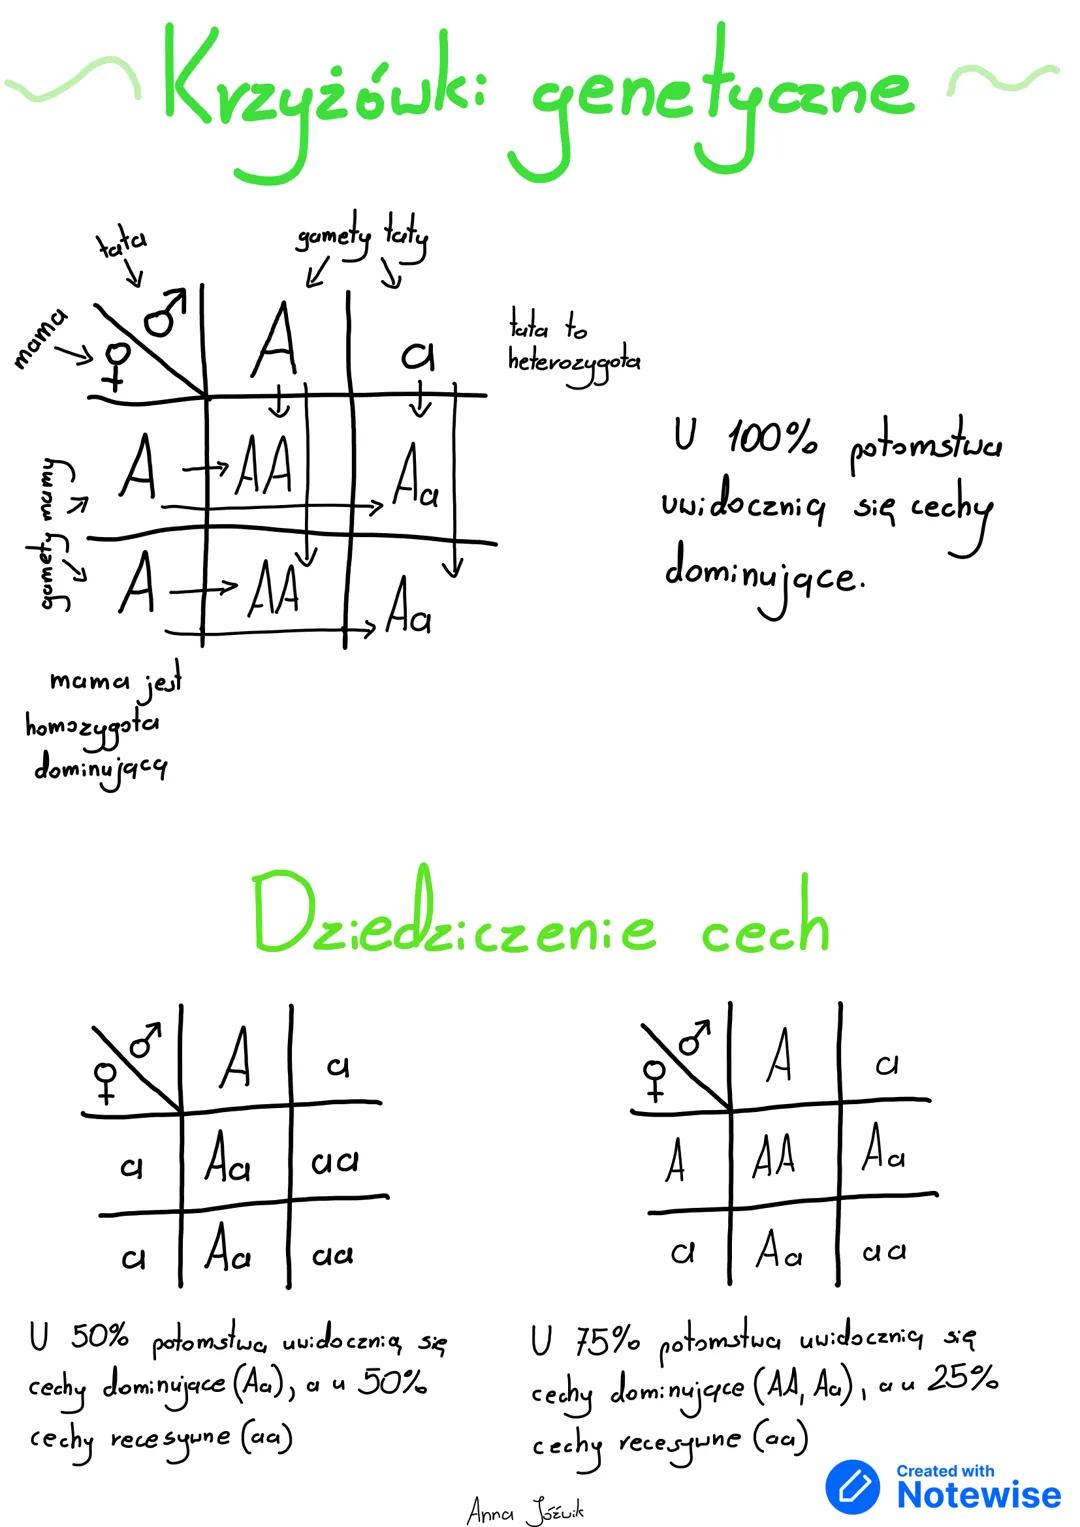 Krzyżówki genetyczne
tata
gamety taty
mama
♂
♀
A
a
tata to
heterozygota
gamety mamy
A
AA
Aa
A
AA
Aa
U 100% potomstwa
uwidocznią się cechy
dominujące.
mama jest
homozygotą
dominującą
Dziedziczenie cech
♂
♀
A
a
a
Aa
aa
a
Aa
aa
U 50% potomstwa uwidocznią się
cechy dominujące (Aa), a u 50%
cechy recesywne (aa)
♂
♀
A
a
A
AA
Aa
a
Aa
aa
U 75% potomstwa uwidocznią się
cechy dominujące (AA, Aa), a u 25%
cechy recesywne (aa)
Anna Jóźwik
Created with
Notewise